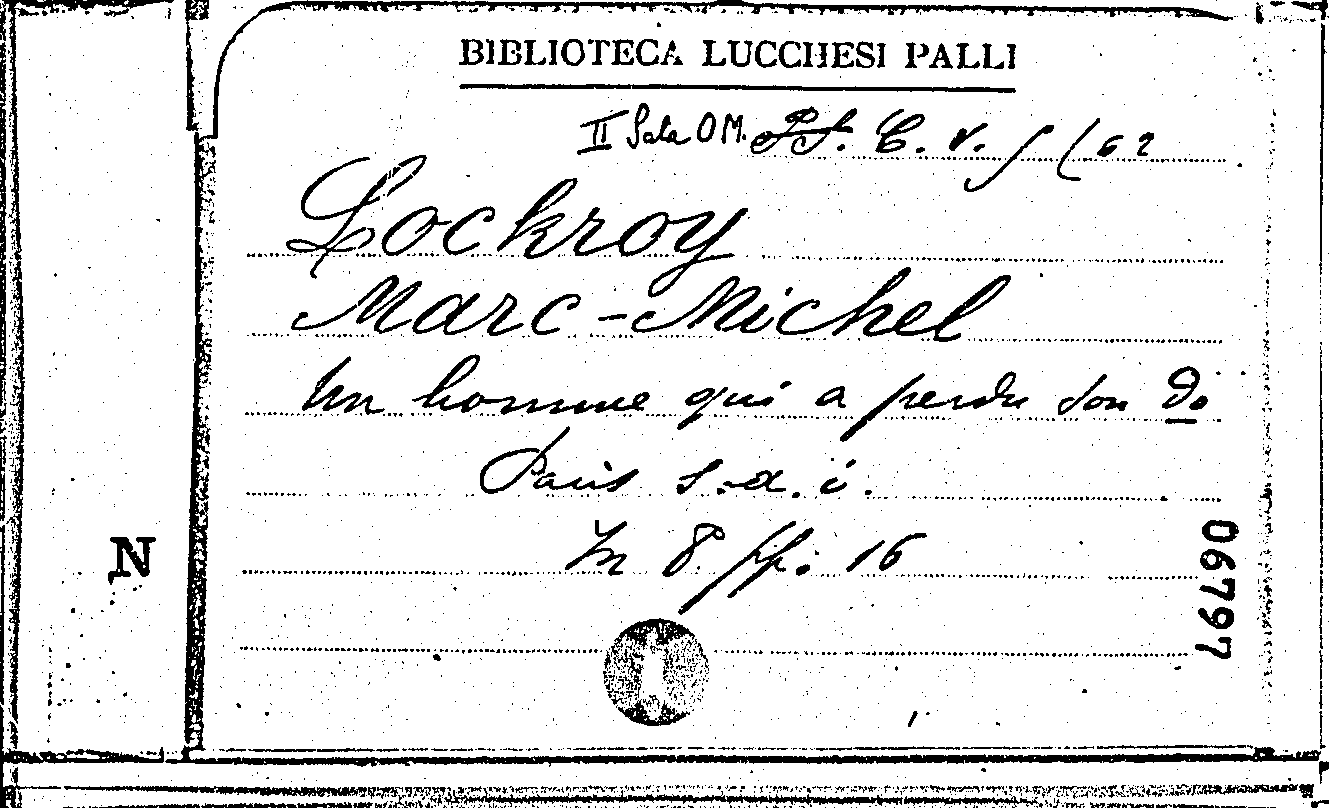 BIBLIOTECA LUCCHESI PALLI
II Sala O M. C. V. 5 (62
Lockroy
Marc-Michel
Un homme qui a perdu son do
Paris s. d. i.
In 8. pp. 16
N
06797